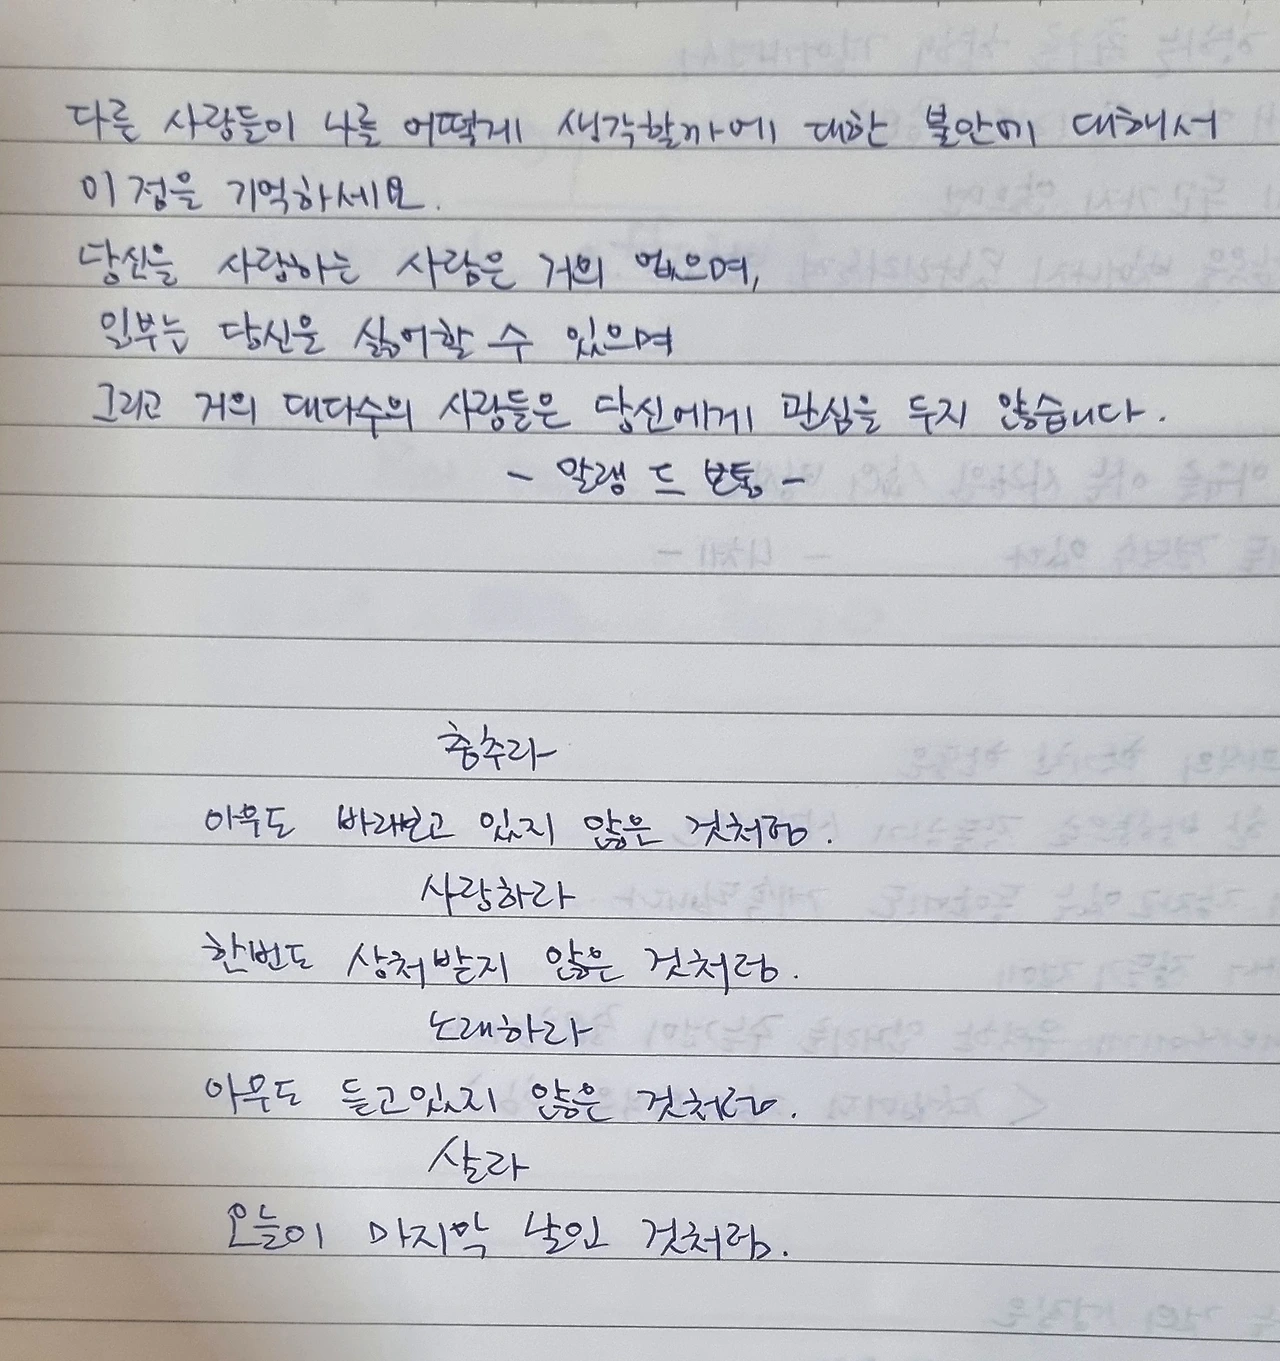 다른 사람들이 나를 어떻게 생각할까에 대한 불안에 대해서
이 점을 기억하세요.
당신을 사랑하는 사람은 거의 없으며,
일부는 당신을 싫어할 수 있으며
그리고 거의 대다수의 사람들은 당신에게 관심을 두지 않습니다.
- 알랭 드 보통 -
춤추라
아무도 바라보고 있지 않은 것처럼.
사랑하라
한번도 상처받지 않은 것처럼.
노래하라
아무도 듣고있지 않은 것처럼.
살라
오늘이 마지막 날인 것처럼.